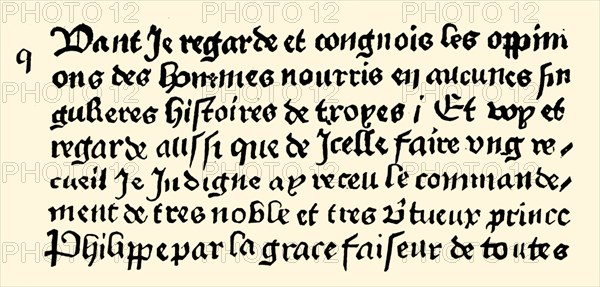 q Vant Je regarde et congnois les oppini
ons des hommes nourris en aucunes ſin
gulieres hiſtoires de troyes i Et voy et
regarde auſſi que de Icelle faire vng re/
cueil Je Indigne ay receu le commande/
ment de tres noble et tres v̓tueux prince
Philippe par la grace faiſeur de toutes
PHOTO 12